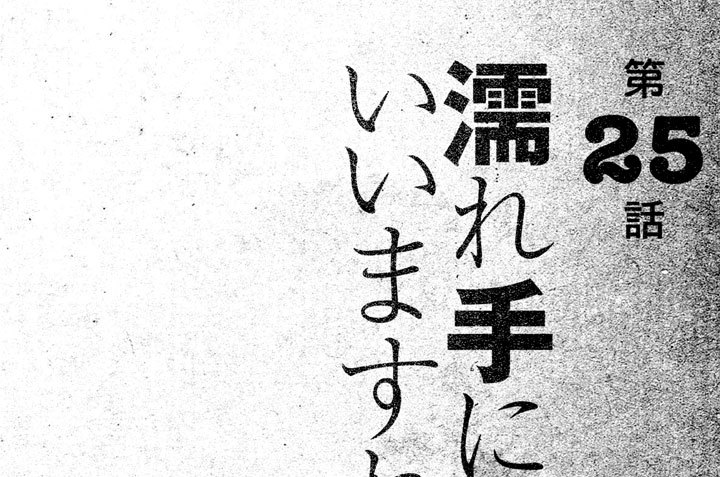 第25話
濡れ手に
いいます